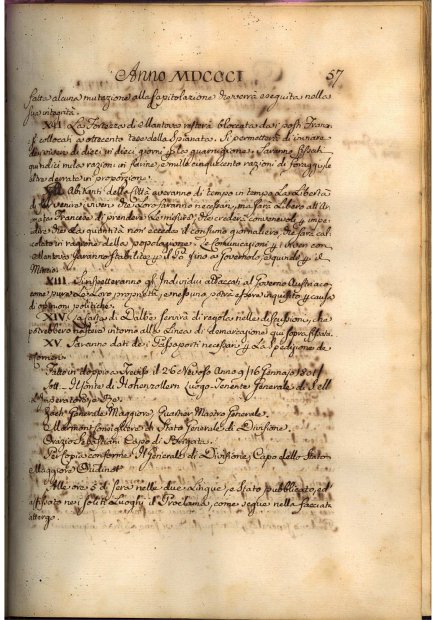 Anno MDCCCI 57
fatta alcuna mutazione alla Capitolazione che verrà eseguita nella
sua integrità.
XII. La Fortezza di Mantova resterà bloccata da i posti Francesi
collocati a ottocento Tese dalla Spianata. Si permetterà di inviare
dei viveri di dieci in dieci giorni p la guarnigione. Saranno fissati
quindici mila razioni in farine, e mille cinquecento razioni di foraggi, le
altre derrate in proporzione.
Gli Abitanti della Città averanno di tempo in tempo La Libertà
di far venire i viveri che Loro saranno necessari, ma sarà Libero all'Ar-
mata Francese di prendere Le misure, che crederà convenevoli p impe-
dire che La quantità non ecceda il consumo giornaliero, che sarà cal-
colato in ragione della popolazione. Le Comunicazioni p i viveri con
Mantova saranno stabilite p il Pò fino a Governolo, e quindi p il
Mincio.
XIII. Si rispetteranno gli Individui attaccati al Governo Austriaco
come pure Le Loro proprietà, e nessuno potrà essere inquisito p causa
di opinioni politiche.
XIV. La Carta di Dalbe servirà di regola nelle discussioni, che
potrebbero nascere intorno alla Linea di demarcazione qui sopra fissata.
XV. Saranno dati dei Passaporti necessari p La spedizione de
Corrieri.
Fatto in doppio a Treviso il 26 Nevoso Anno 9 /16 Gennajo 1801/
Sott. Il Conte di Hohenzollern Luogo-Tenente Generale di S. M.
Imperatore, e Re.
Zach Generale Maggiore, Quartier Mastro Generale.
Marmont Consigliere di Stato Generale di Divisione.
Orazio Sebastiani Capo di Brigata.
Per Copia conforme Il Generale di Divisione, Capo dello Stato
Maggiore Oudinot
Alle ore 5 di sera nelle due Lingue, e stato pubblicato, ed
affissato nei soliti Luoghi il Proclama, come segue nella facciata
attergo.